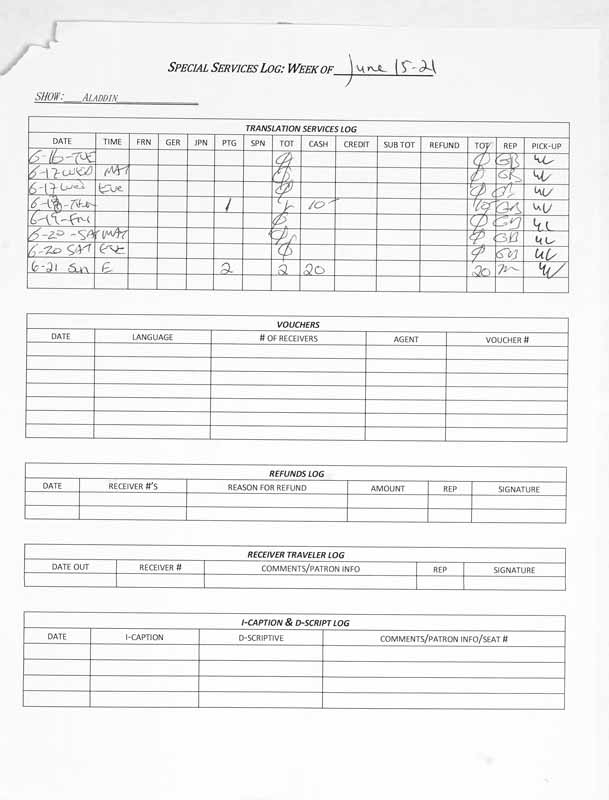 SPECIAL SERVICES LOG: WEEK OF June 15-21
SHOW: ALADDIN
TRANSLATION SERVICES LOG
DATE TIME FRN GER JPN PTG SPN TOT CASH CREDIT SUB TOT REFUND TOT REP PICK-UP
6-16-TUE Ø Ø GB
6-17 WED MAT Ø Ø GB
6-17 WED EVE Ø Ø GB
6-18-THU 1 1 10- 10 GB
6-19-FRI Ø Ø GB
6-20-SAT MAT Ø Ø GB
6-20 SAT EVE Ø Ø GB
6-21 Sun E 2 2 20 20
VOUCHERS
DATE LANGUAGE # OF RECEIVERS AGENT VOUCHER #
REFUNDS LOG
DATE RECEIVER #'S REASON FOR REFUND AMOUNT REP SIGNATURE
RECEIVER TRAVELER LOG
DATE OUT RECEIVER # COMMENTS/PATRON INFO REP SIGNATURE
I-CAPTION & D-SCRIPT LOG
DATE I-CAPTION D-SCRIPTIVE COMMENTS/PATRON INFO/SEAT #